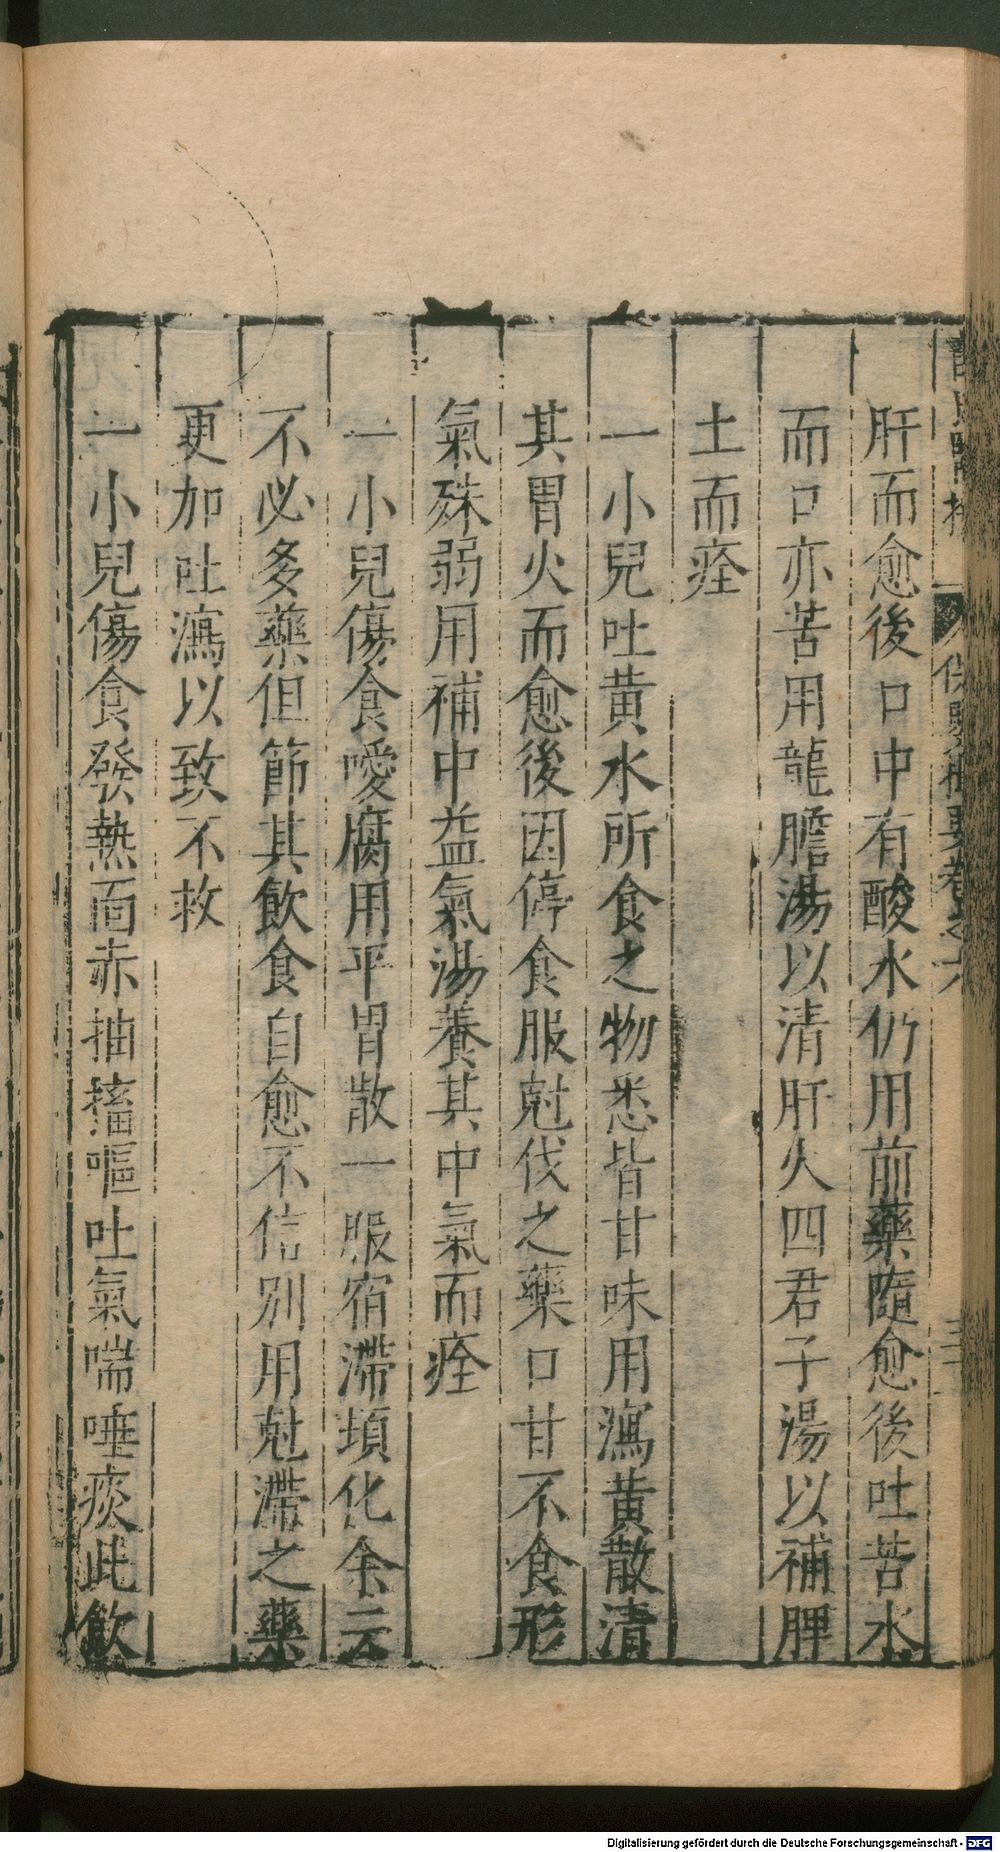 肝而愈後口中有酸水仍用前藥隨愈後吐苦水
而口亦苦用龍膽湯以清肝火四君子湯以補脾
土而痊
一小兒吐黃水所食之物悉皆甘味用瀉黃散清
其胃火而愈後因停食服尅伐之藥口甘不食形
氣殊弱用補中益氣湯養其中氣而痊
一小兒傷食噯腐用平胃散一服宿滯頃化余云
不必多藥但節其飲食自愈不信別用尅滯之藥
更加吐瀉以致不救
一小兒傷食發熱面赤抽搐嘔吐氣喘唾痰此飲
保嬰撮要卷之六
Digitalisierung gefördert durch die Deutsche Forschungsgemeinschaft - DFG